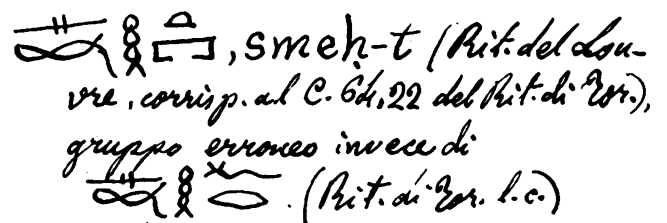 , smeḥ-t (Rit. del Lou-
vre, corrisp. al C. 64, 22 del Rit. di Tor.),
gruppo erroneo invece di
. (Rit. di Tor. l. c.)